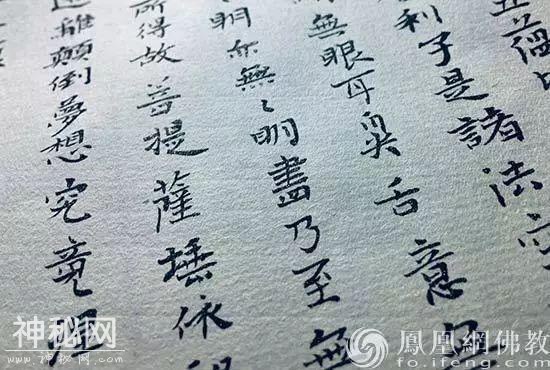 五蘊
利子是諸法空
無眼耳鼻舌意
明亦無〻明盡乃至無
所得故菩提薩埵依
離顛倒夢想究竟
神秘网
www.神秘网.com
鳳凰網佛教
fo.ifeng.com